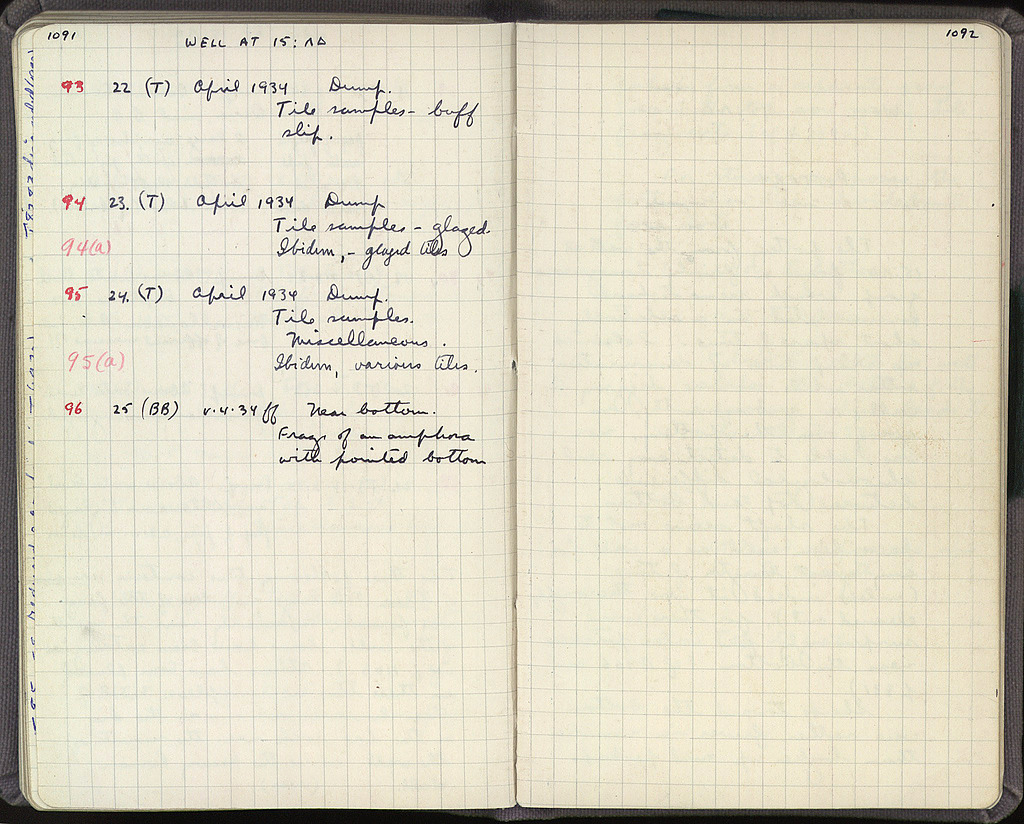 1091
WELL AT 15: ΛΔ
93 22 (T) April 1934 Dump.
Tile samples - buff
slip.
94 23. (T) April 1934 Dump
Tile samples - glazed.
94(a) Ibidem, - glazed tiles
95 24. (T) April 1934 Dump.
Tile samples.
Miscellaneous.
95(a) Ibidem, various tiles.
96 25 (BB) v.4.34 ff Near bottom.
Frags of an amphora
with pointed bottom
1092